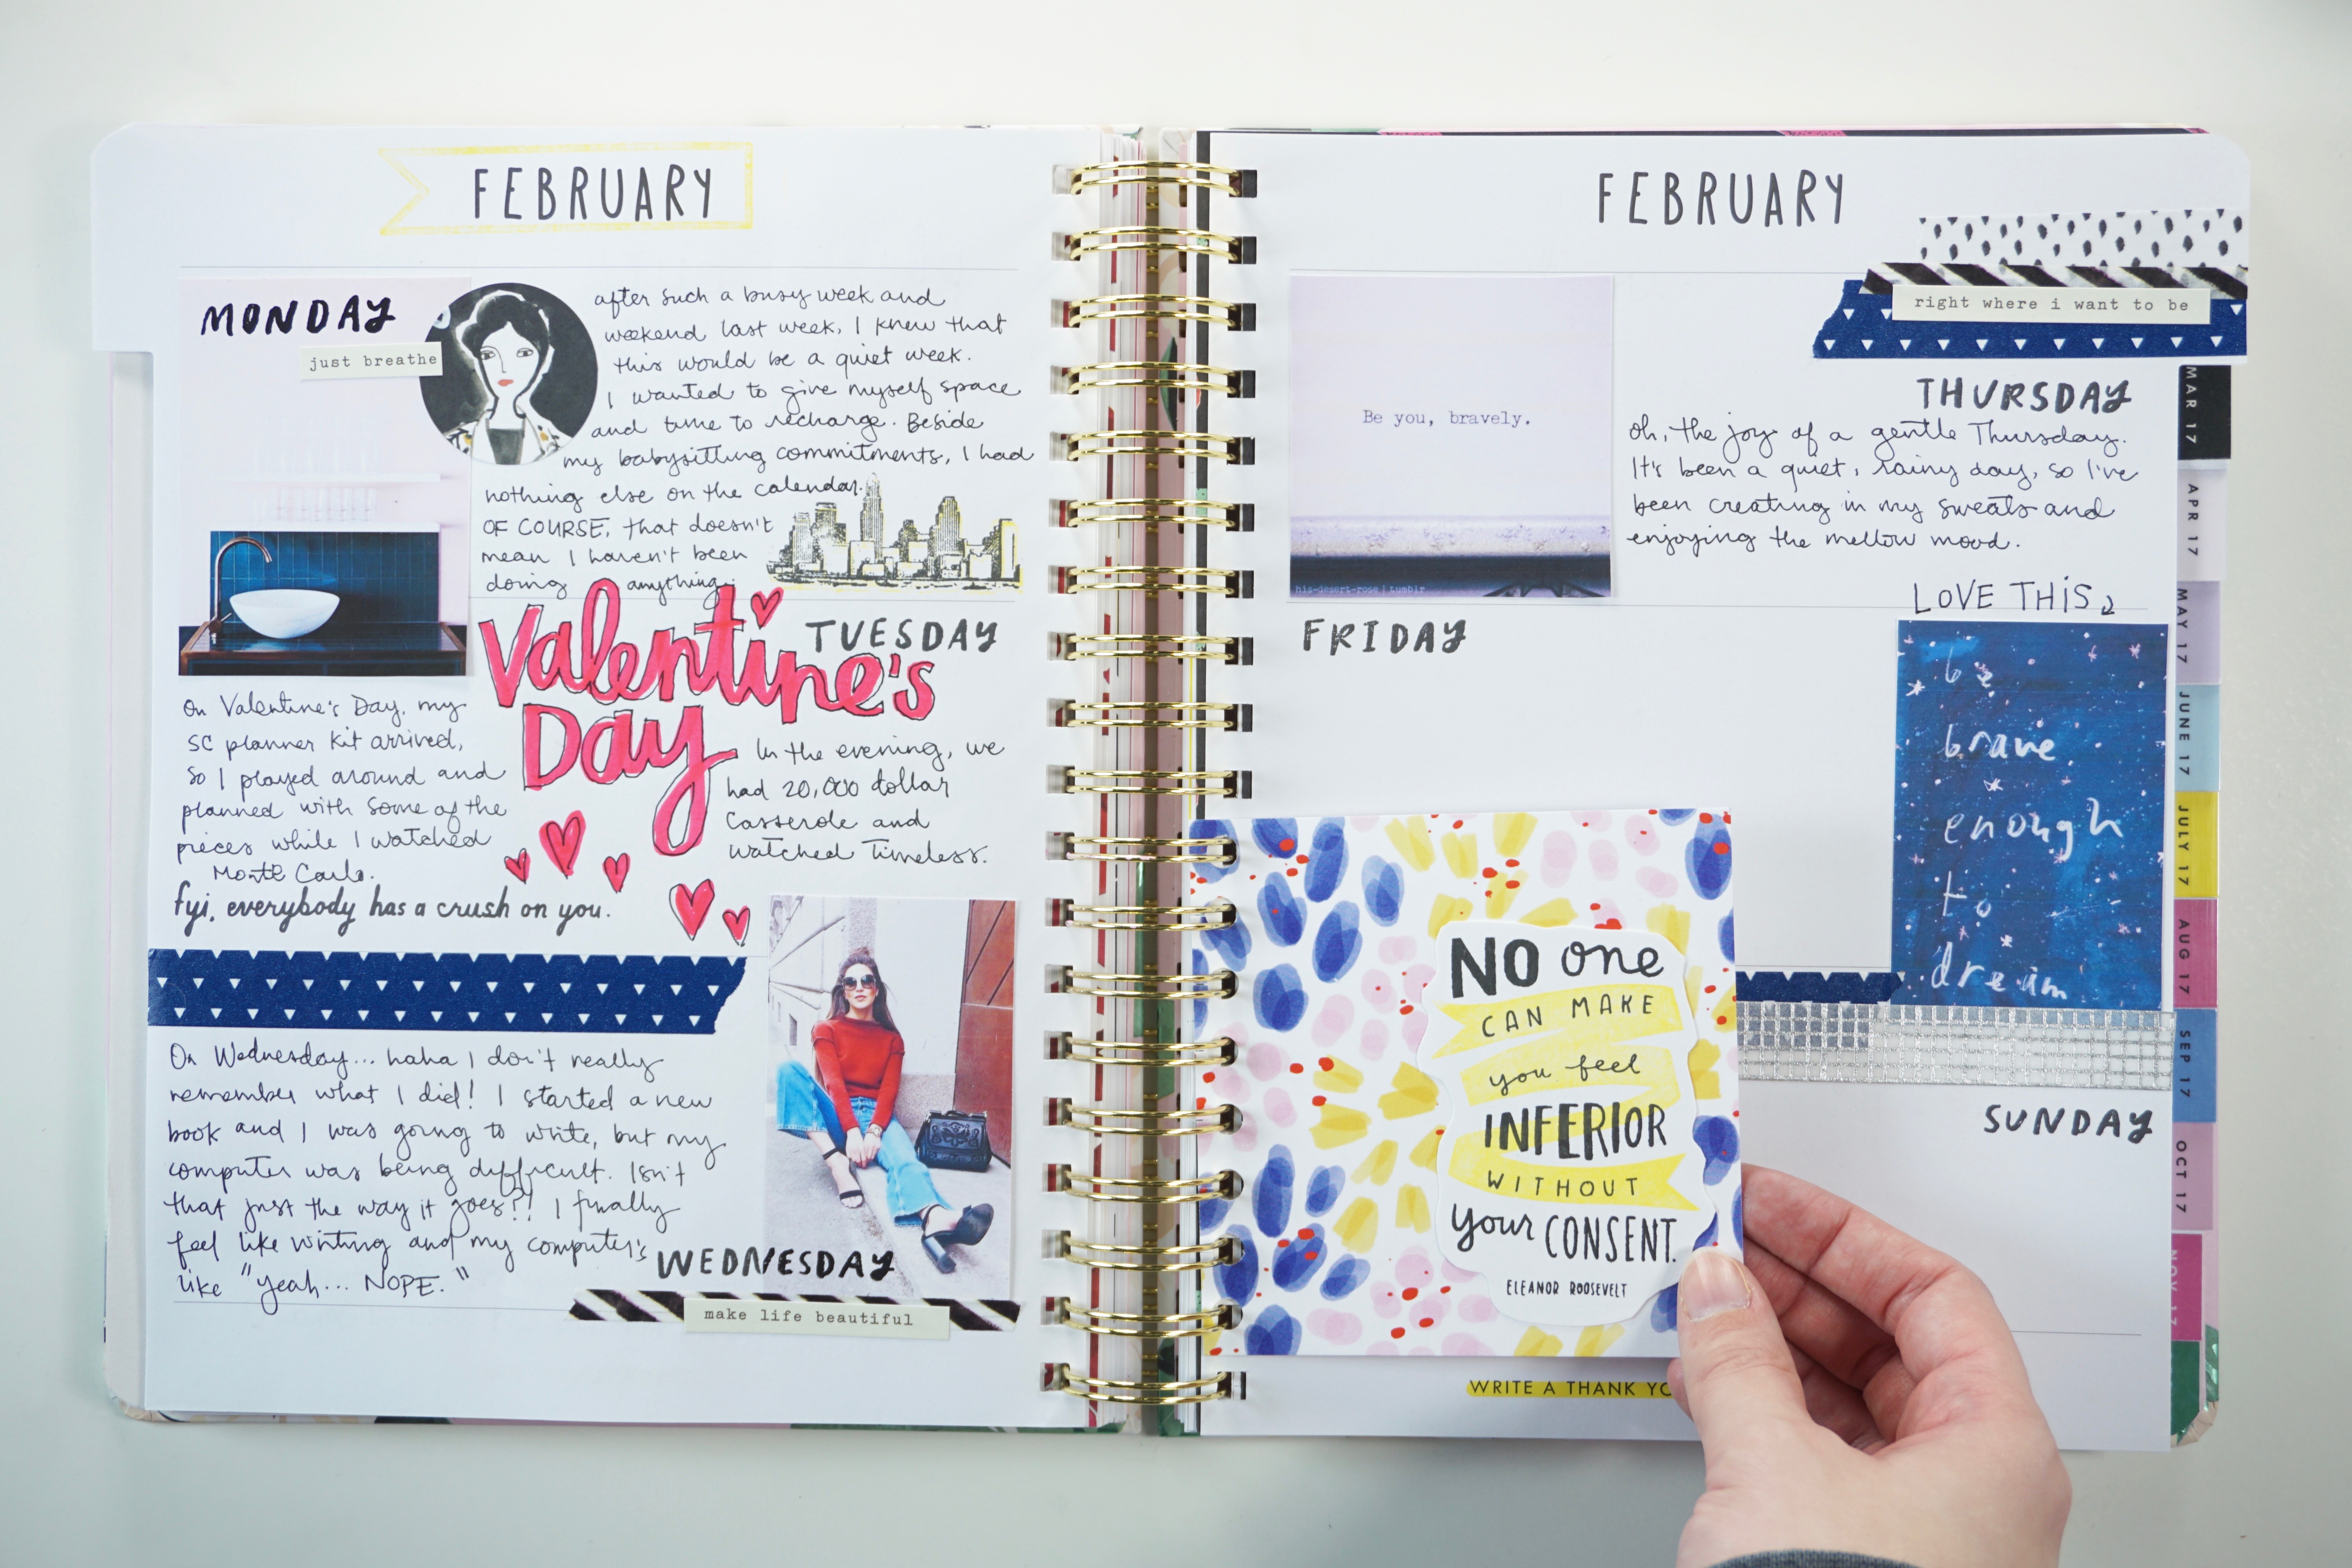 FEBRUARY
MONDAY
just breathe
after such a busy week and
weekend last week, I knew that
this would be a quiet week.
I wanted to give myself space
and time to recharge. Beside
my babysitting commitments, I had
nothing else on the calendar.
OF COURSE, that doesn't
mean I haven't been
doing anything.
Valentine's
Day
TUESDAY
On Valentine's Day, my
SC planner kit arrived,
so I played around and
planned with some of the
pieces while I watched
Monte Carlo.
In the evening, we
had 20,000 dollar
casserole and
watched Timeless.
fyi, everybody has a crush on you.
On Wednesday... haha I don't really
remember what I did! I started a new
book and I was going to write, but my
computer was being difficult. Isn't
that just the way it goes?! I finally
feel like writing and my computer's
like "yeah... NOPE."
WEDNESDAY
make life beautiful
FEBRUARY
right where i want to be
Be you, bravely.
his-desert-rose | tumblr
THURSDAY
Oh, the joy of a gentle Thursday.
It's been a quiet, rainy day, so I've
been creating in my sweats and
enjoying the mellow mood.
LOVE THIS
FRIDAY
be
brave
enough
to
dream
NO one
CAN MAKE
you feel
INFERIOR
WITHOUT
your CONSENT.
ELEANOR ROOSEVELT
SUNDAY
WRITE A THANK YO
MAR 17
APR 17
MAY 17
JUNE 17
JULY 17
AUG 17
SEP 17
OCT 17
NOV 17